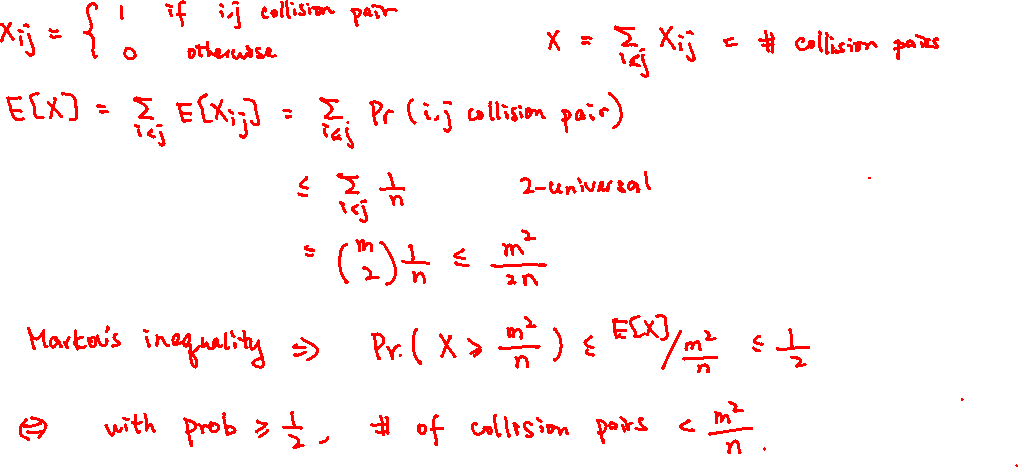 X_{ij} = { 1 if i,j collision pair
0 otherwise
X = Σ_{i<j} X_{ij} = # collision pairs
E[X] = Σ_{i<j} E[X_{ij}] = Σ_{i<j} Pr (i,j collision pair)
≤ Σ_{i<j} 1/n 2-universal
= (m 2) 1/n ≤ m²/2n
Markov's inequality ⇒ Pr.( X ≥ m²/n ) ≤ E[X] / m²/n ≤ 1/2
⇔ with prob ≥ 1/2, # of collision pairs < m²/n.